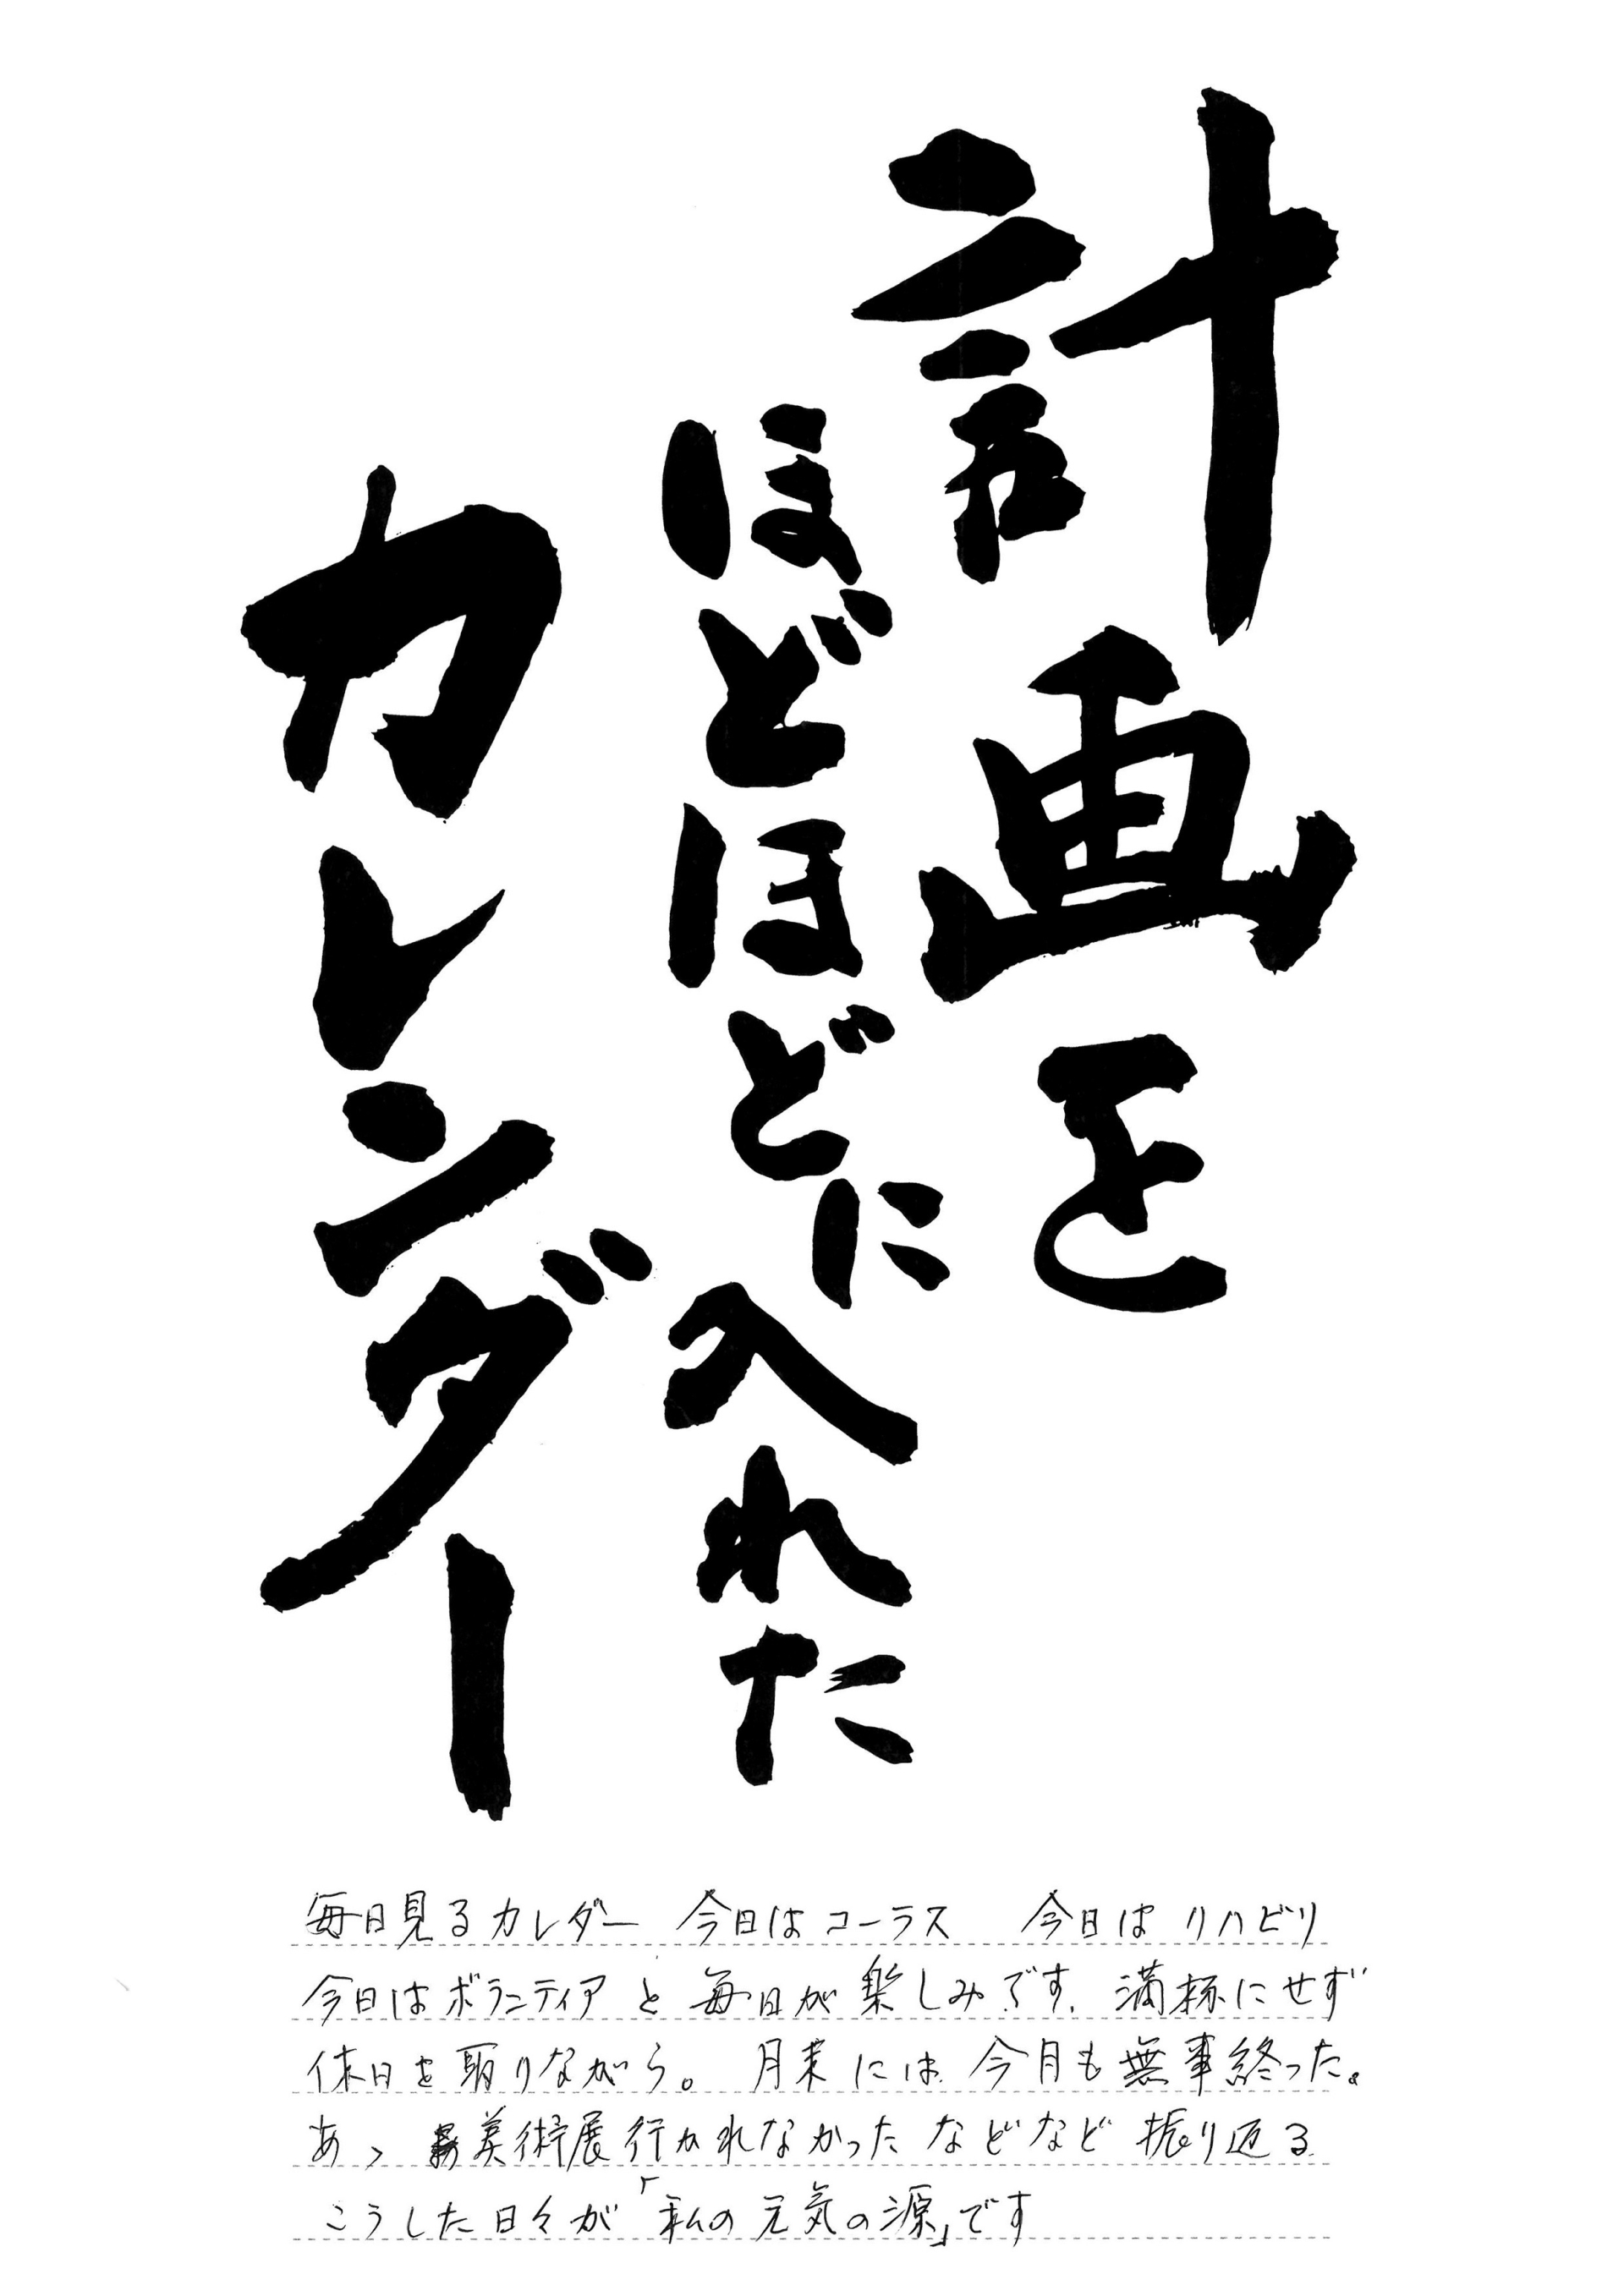 計画を
ほどほどに入れた
カレンダー
毎日見るカレダー 今日はコーラス 今日はリハビリ
今日はボランティアと毎日が楽しみです、満杯にせず
休日を取りながら。 月末には今月も無事終った。
あゝ 美術展行かれなかったなどなど振り返る
こうした日々が「私の元気の源」です